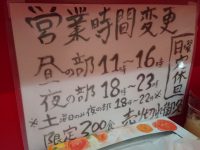 営業時間変更
昼の部11時～16時
夜の部18時～23時
※土曜日のみ夜の部18時～22時※
限定200食 売り切れ御免
日曜定休日